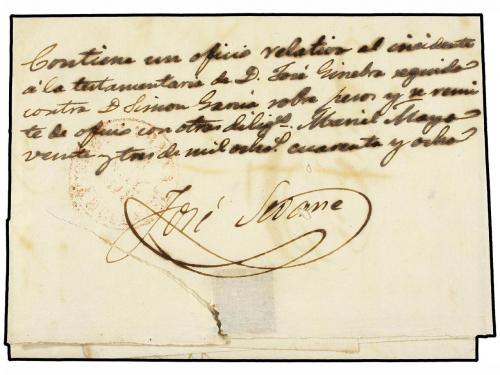 Contiene un oficio relativo al incidente
á la testamentaria de D. José Ginebra seguido
contra D. Simon Garcia sobre pesos y se remi
te de oficio con otras dilig.s Mariel Mayo
veinte y tres de mil ocho.s cuarenta y ocho
José Seoane